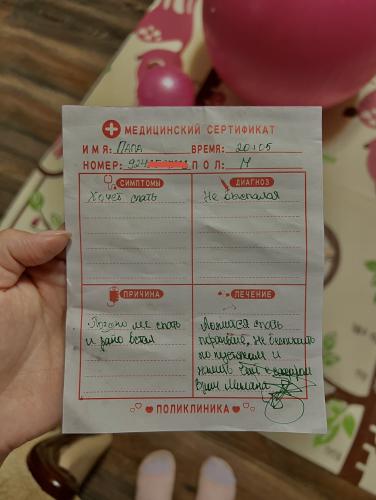 МЕДИЦИНСКИЙ СЕРТИФИКАТ
ИМЯ: ПАПА ВРЕМЯ: 20:05
НОМЕР: 924 ПОЛ: М
СИМПТОМЫ
Хочет спать
ДИАГНОЗ
Не выспался
ПРИЧИНА
Поздно лёг спать
и рано встал
ЛЕЧЕНИЕ
Ложится спать
пораньше, не беспокоить
по пустякам и
попить чай с сахаром
Врач Милана
ПОЛИКЛИНИКА